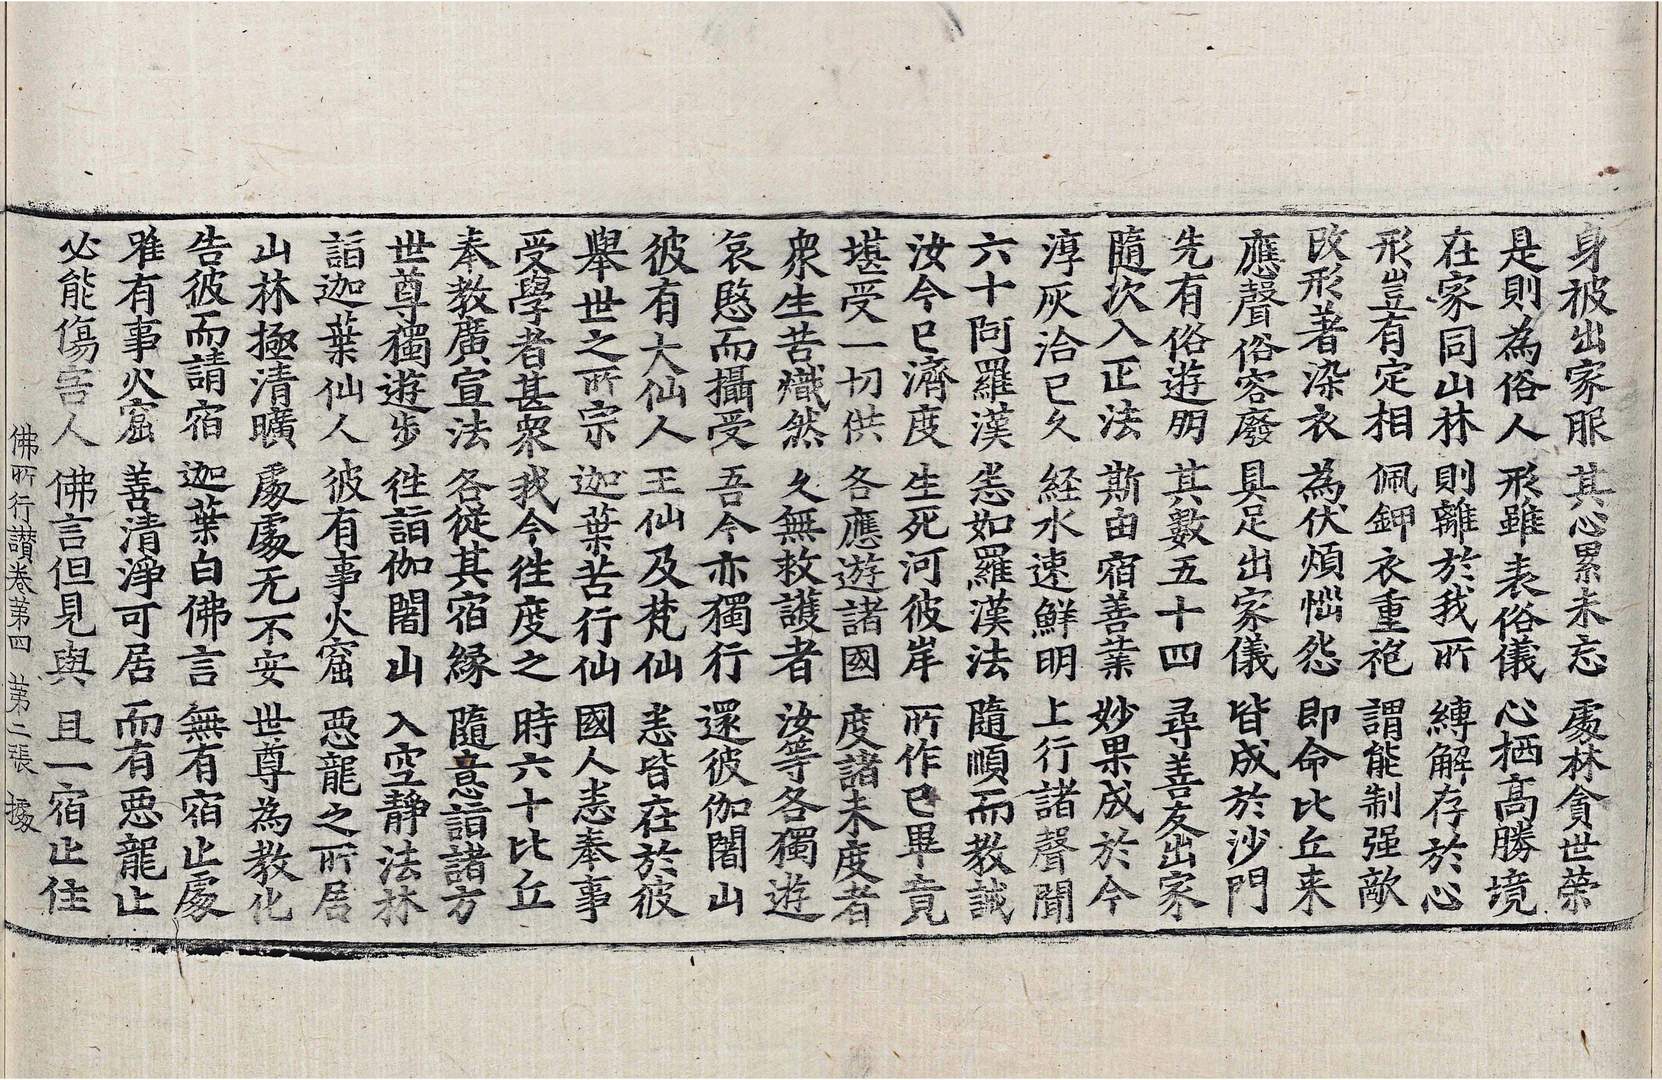 身被出家服　其心累未忘　處林貪世榮
是則為俗人　形雖表俗儀　心栖高勝境
在家同山林　則離於我所　縛解存於心
形豈有定相　佩鉀衣重袍　謂能制强敵
改形著染衣　為伏煩惱怨　即命比丘来
應聲俗容廢　具足出家儀　皆成於沙門
先有俗遊朋　其數五十四　尋善友出家
隨次入正法　斯由宿善業　妙果成於今
淳灰洽已久　経水速鮮明　上行諸聲聞
六十阿羅漢　悉如羅漢法　隨順而教誡
汝今已濟度　生死河彼岸　所作已畢竟
堪受一切供　各應遊諸國　度諸未度者
衆生苦熾然　久無救護者　汝等各獨遊
哀愍而攝受　吾今亦獨行　還彼伽闍山
彼有大仙人　王仙及梵仙　悉皆在於彼
舉世之所宗　迦葉苦行仙　國人悉奉事
受學者甚衆　我今徃度之　時六十比丘
奉教廣宣法　各從其宿縁　隨意詣諸方
世尊獨遊步　徃詣伽闍山　入空静法林
詣迦葉仙人　彼有事火窟　惡龍之所居
山林極清曠　處處无不安　世尊為教化
告彼而請宿　迦葉白佛言　無有宿止處
唯有事火窟　善清淨可居　而有惡龍止
必能傷害人　佛言但見與　且一宿止住
佛所行讃卷第四　第二張　據